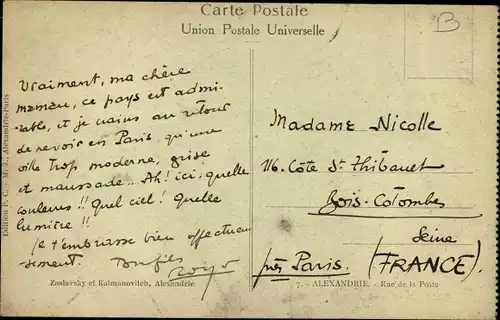 Carte Postale
Union Postale Universelle
B
Vraiment, ma chère
maman, ce pays est admi-
rable, et je crains au retour
de revoir en Paris, qu'une
ville trop moderne, grise
et maussade... Ah! ici, quelle
couleurs!! Quel ciel! Quelle
lumière!!
je t'embrasse bien affectueu
sement.
Madame Nicolle
116. Côte St Thibauet
Bois-Colombes
Seine
près Paris. (FRANCE).
Edition P. C. Alexandrie-Paris
Zaslavsky et Kalmanovitch, Alexandrie
7. - ALEXANDRIE. - Rue de la Poste